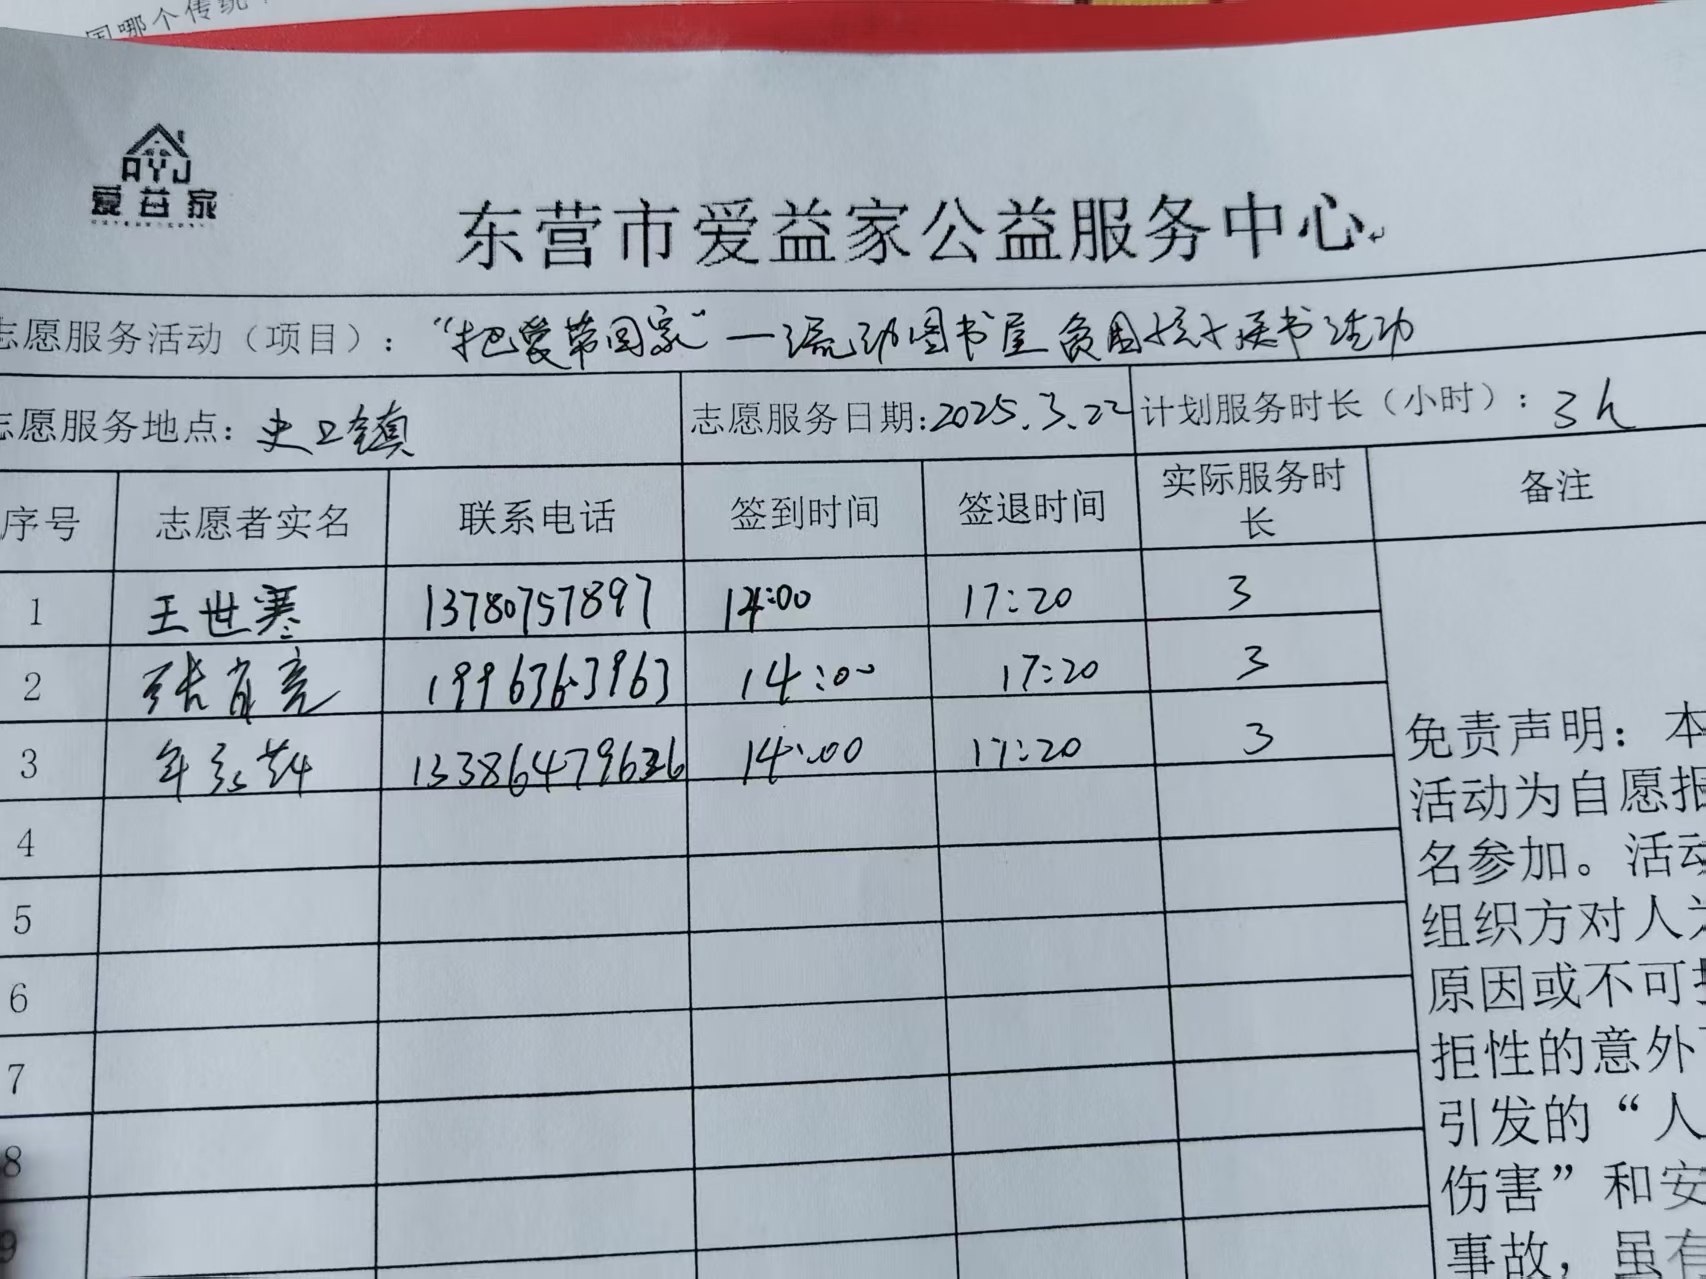 国哪个传统
AYJ
爱益家
东营市爱益家公益服务中心
志愿服务活动（项目）：“把爱带回家”—流动图书屋贫困孩子读书活动
志愿服务地点：史口镇 志愿服务日期：2025.3.22 计划服务时长（小时）：3h
序号 志愿者实名 联系电话 签到时间 签退时间 实际服务时长 备注
1 王世寒 13780757897 14:00 17:20 3
2 张肖亮 19963763963 14:00 17:20 3
3 年 13386479636 14:00 17:20 3
4
5
6
7
8
9
免责声明：本
活动为自愿报
名参加。活动
组织方对人为
原因或不可抗
拒性的意外
引发的“人
伤害”和安
事故，虽有